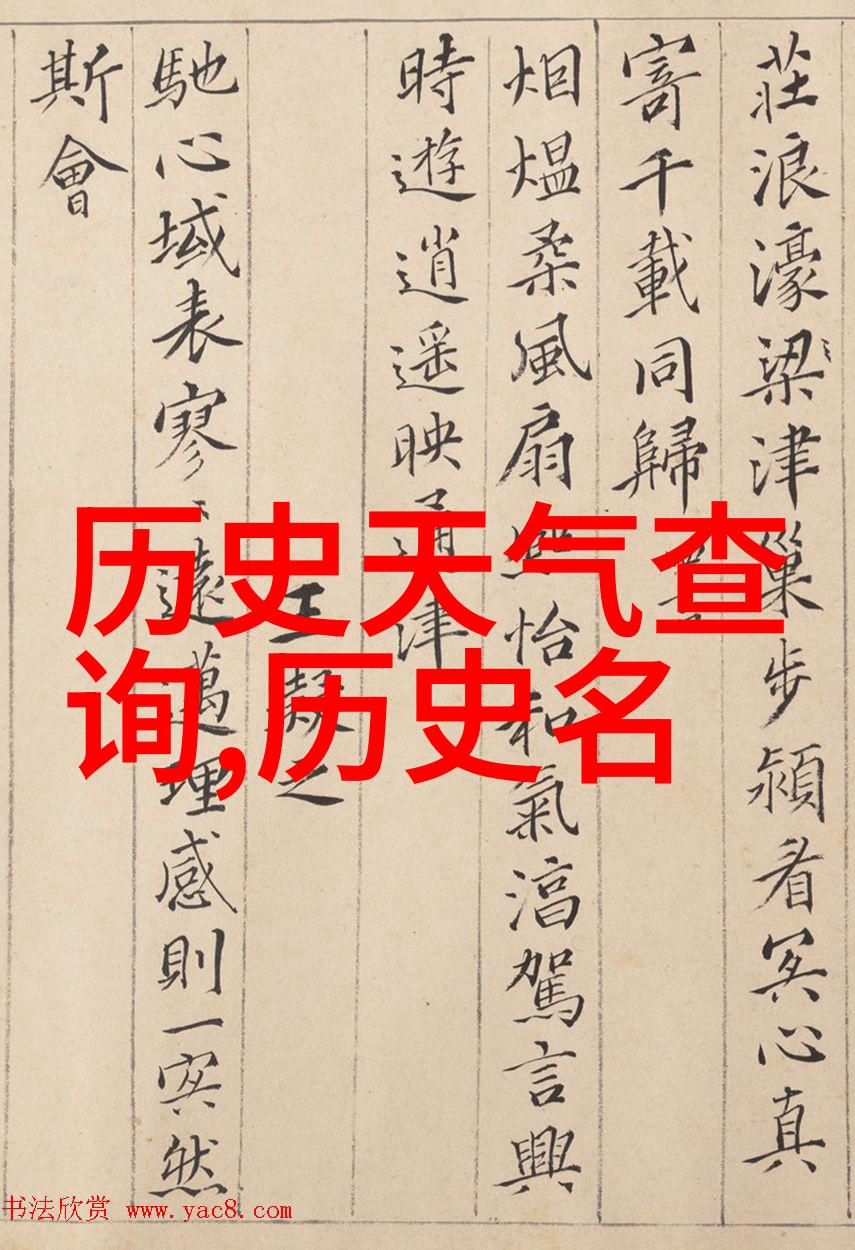 莊浪濠梁津巢步潁看冥心真
寄千載同歸
烟煴柔風扇熙怡和氣湻駕言興
時遊逍遥映通津
王凝之
馳心域表寥〻遠邁理感則一冥然
斯會
历史天气查
询,历史名
书法欣赏 www.yac8.com